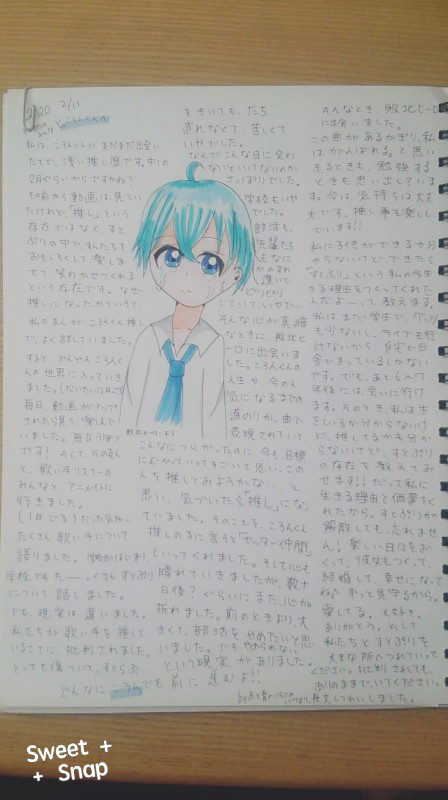 2020 2/11
私は、ころんくんにまだまだ出会い
たてで、浅い推し歴です。中1の
2月ぐらいからですかね?
その前から動画は見てい
たけれど、「推し」という
存在ではなく、すと
ぷりの中で、私たちを
おもしろくして、楽しま
せて、笑わかせてくれる
という存在です。なぜ
推しになったかというと、
私の友人がころんくん推し
で、よく話していました。
すると、どんどんころんく
んの世界に入っていき
ました。
毎日、動画がアップ
されたら見て、楽しんで
いました。毎日うP
です! そして、その友人
と、歌い手リスナーの
みんなとアニメイトに
行きました。
たくさん歌い手について
語りました。
学校でもたーーくさんすとぷり
について話しました。
でも、現実は違いました。
私たちが歌い手を推して
いることに、批判されました。
とっても傷ついて、すとぷら
をきいても、たち
直れなくて、苦しくて
いやでした。
なんでこんな目に会わ
ないといけないのか
さっぱりでした。
学校もいや
でした。
部活も、
先輩たち
していて、いやだ…
そんな心が真暗
なときに、敗北ヒー
ローに出会いま
した。ころんくんの
人生が、今の人
気になるまでの
道のりが、曲で
表現されていて
敗北ヒーローより
こんなにつらかったのに、今も目標
にむかっていってすごいと思い、この
人を推してみようかな…と
思い、気づいたら「推し」になっ
ていました。そのことを、ころんくん
推しの子に言うと「ヤッター仲間」
といってくれました。そして心も
晴れていきましたが、数十
日後?ぐらいにまた、心が
折れました。前のときより、大
きくて、部活をやめたいと思
いました。でもやめられない
という現実がありました。
そんなとき敗北ヒーロー
に出会いました。
この曲があるかぎり、私
は、がんばれる。と思い
走るときも、勉強する
ときも思い出していま
す。今は気持ちは大丈
夫です。推し事も楽しん
でいます!!
私に子供ができるか分
からないけど、できたら
「すとぷり」という私の今生き
る理由をつくってくれた
人だよーーって教えます。
私は、まだ学生で、グッズ
も少ないし、ライブも行
けないから自宅で田
舎でまっているしかない
です。でも、あと6〜7
年後には、会いに行け
ます。そのとき、私は生き
ているか分からないけ
ど、推してるかも分か
らないけど、すとぷり
の存在を教えてみ
せます!だって私に
生きる理由と価値をく
れたから。すとぷりが
解散しても、忘れませ
ん!楽しい日々をお
くって、彼女もつくって、
結婚して、幸せになって
ね♪ずっと見守るから。
愛してる。大好き。
ありがとう。そして、
私たちとすとぷりを
大きな所へつれていって
ください。批判されても、
ありのままでいてください。
長文しつれいしました。
どんなにころんでも前に進むよ!!
Sweet +
+ Snap